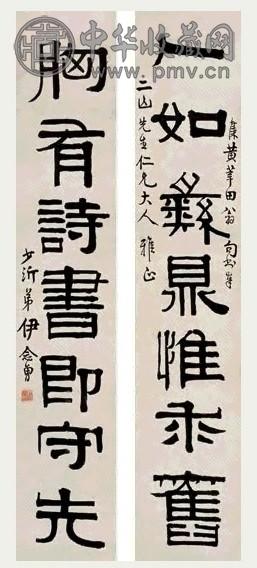 中华收藏网
www.pmv.cn
人如彝鼎惟求舊
集黃莘田翁句書奉
二山先生仁兄大人雅正
胸有詩書即守先
少沂弟伊念曾